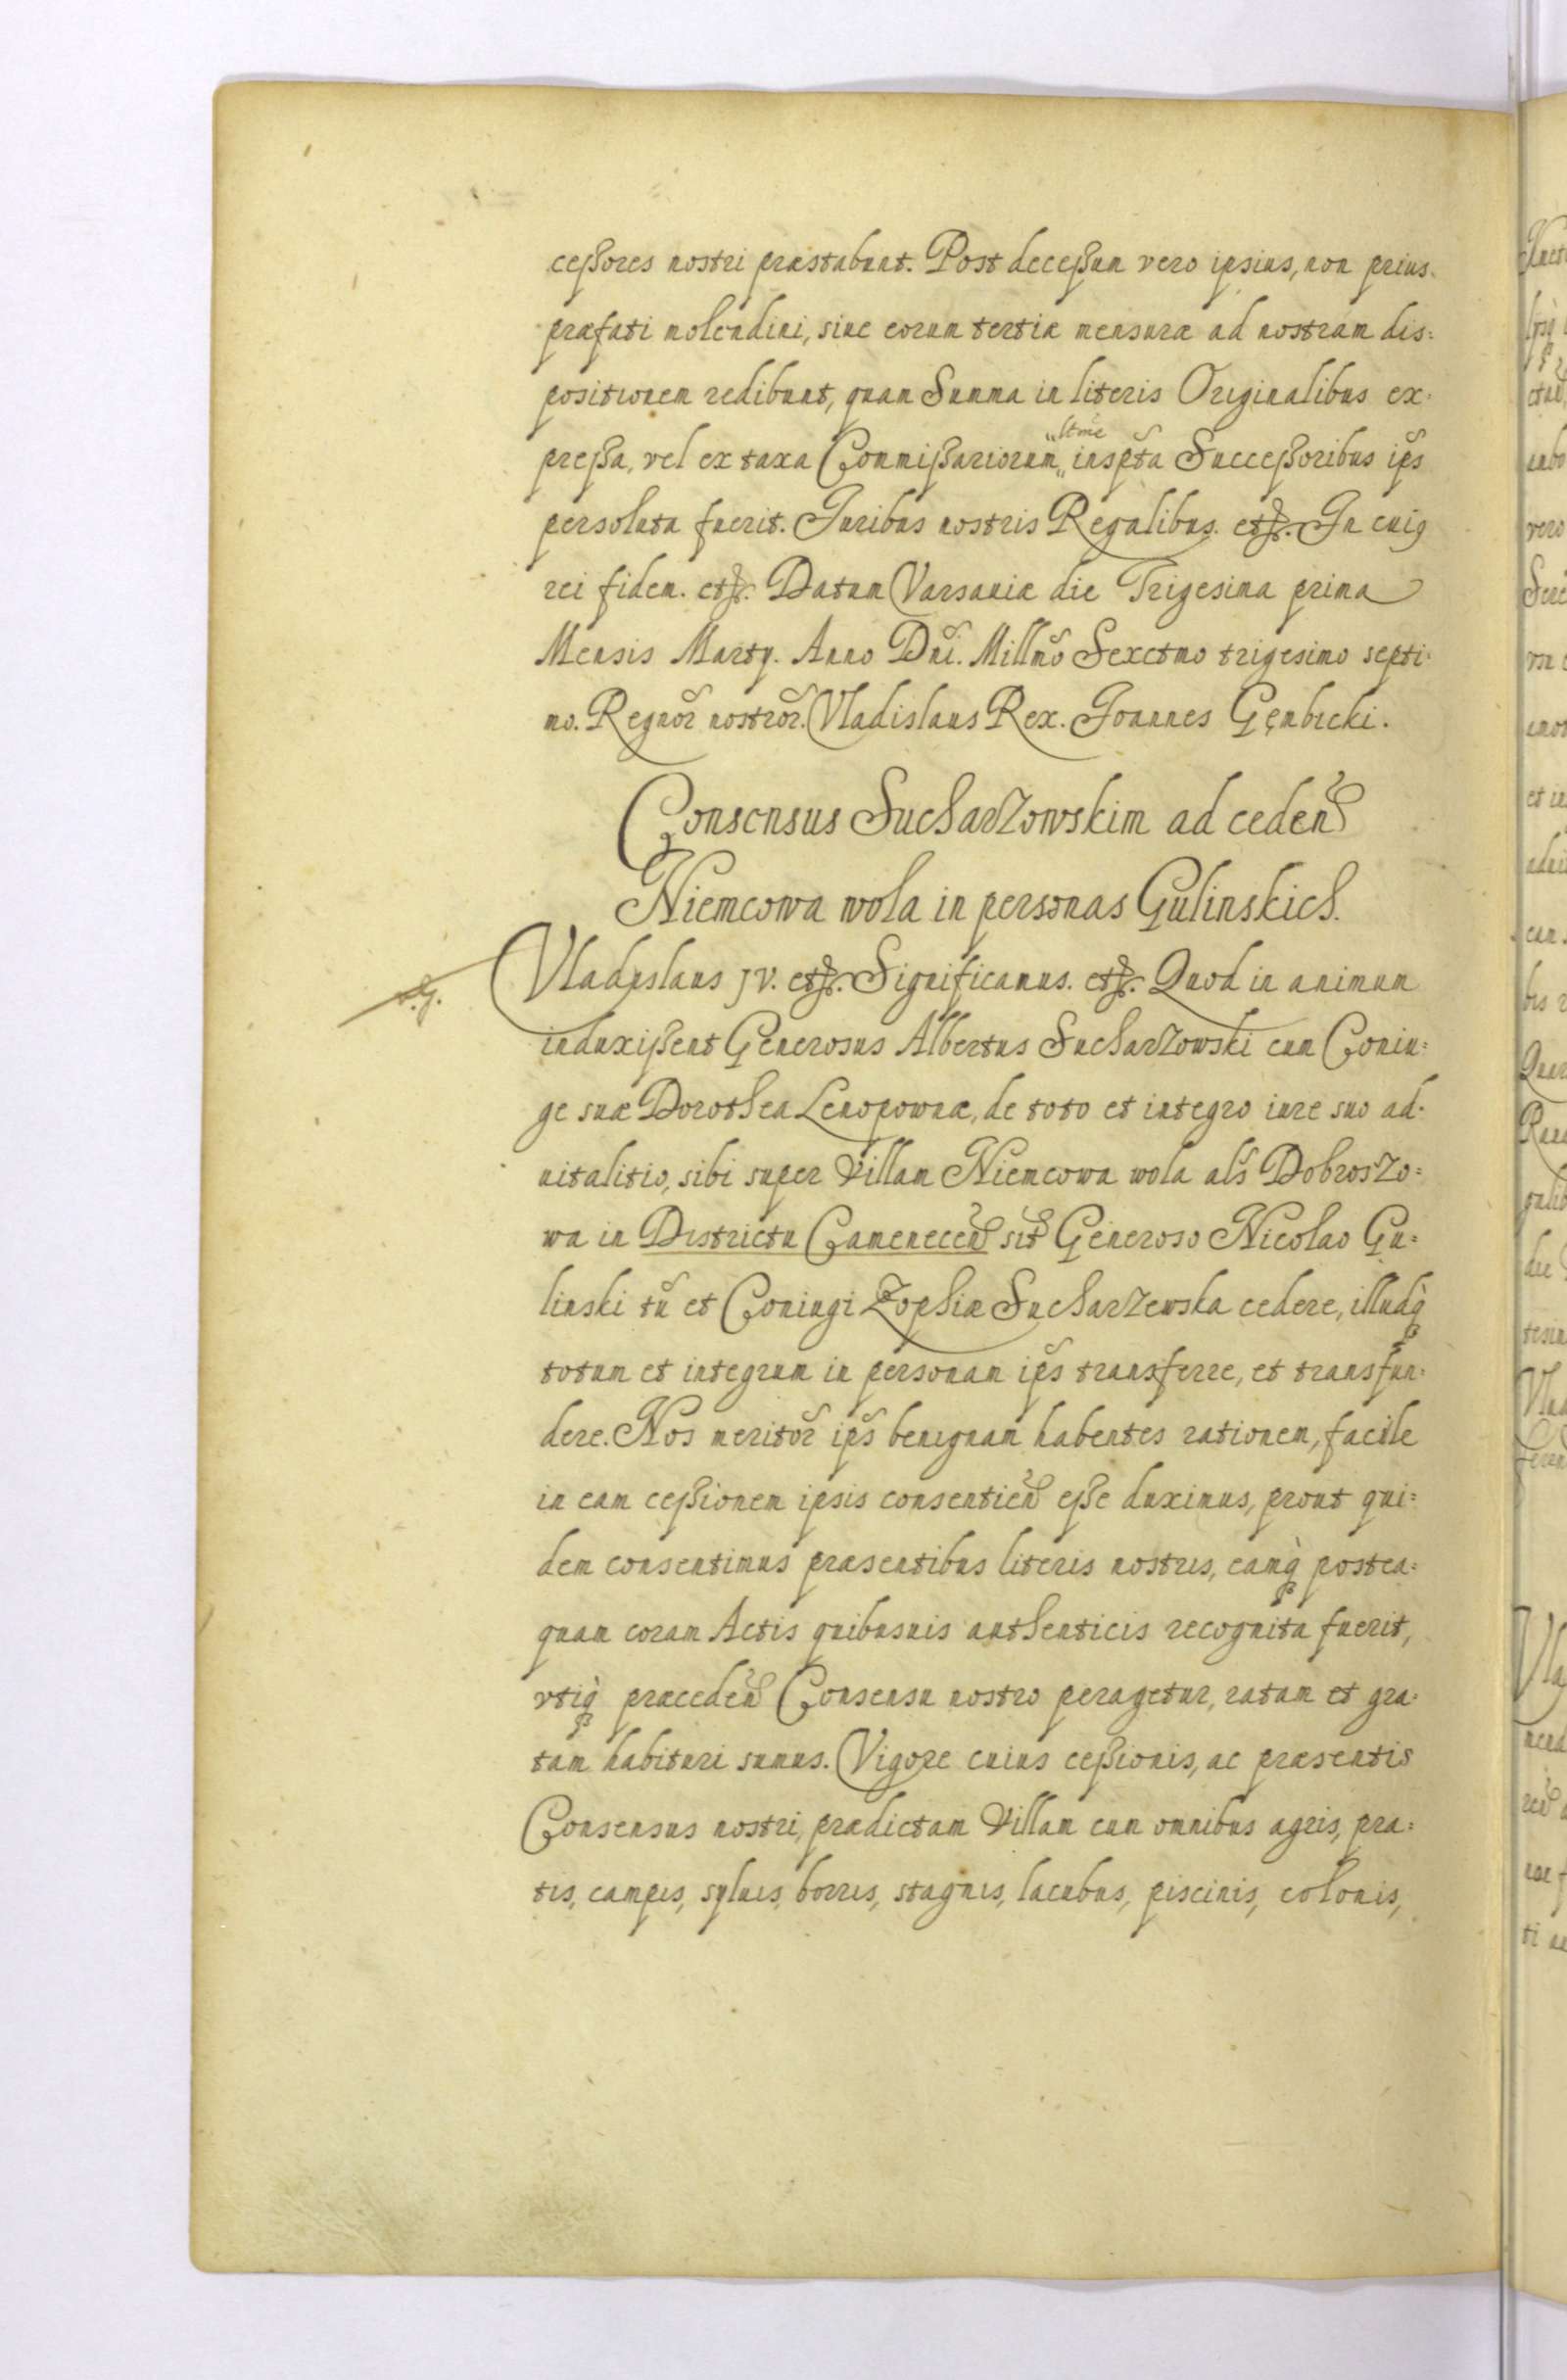 ceßores nostri præstabunt. Post deceßum vero ipsius, non prius
præfati molendini, siue eorum tertiæ mensuræ ad nostram dis:
positionem redibunt, quam Summa in literis Originalibus ex:
preßa, vel ex taxa Commißariorum „ltme„ inspta Succeßoribus ips
persoluta fuerit. Juribus nostris Regalibus. etc. In cuis
rei fidem. etc. Datum Varsauiæ die Trigesima prima
Mensis Marty. Anno Dni. Millmo Sexctmo trigesimo septi:
mo. Regnor nostror. Vladislaus Rex. Joannes Gęmbicki.
Consensus Sucharzowskim ad ceden
Niemcowa wola in personas Gulinskich.
Vladyslaus JV. etc. Significamus. etc. Quod in animum
induxißent Generosus Albertus Sucharzowski cum Coniu:
ge suæ Dorothea Lenopownæ, de toto et integro iure suo ad:
uitalitio, sibi super Villam Niemcowa wola als Dobroszo:
wa in Districtu Camenecen sit Generoso Nicolao Gu:
linski tu et Coniugi Zophiæ Sucharzewska cedere, illudq
totum et integrum in personam ips transferre, et transfun:
dere. Nos meritor ips benignam habentes rationem, facile
in eam ceßionem ipsis consentien eße duximus, prout qui:
dem consentimus præsentibus literis nostris, eamq postea:
quam coram Actis quibusuis authenticis recognita fuerit,
vtiq præceden Consensu nostro peragetur, ratam et gra:
tam habituri sumus. Vigore cuius ceßionis, ac præsentis
Consensus nostri, prædictam Villam cum omnibus agris, pra:
tis, campis, syluis, borris, stagnis, lacubus, piscinis, colonis,